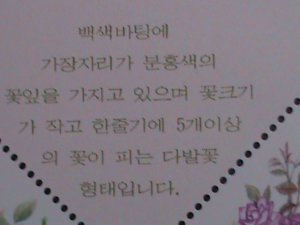 백색바팅에
가장자리가 분홍색의
꽃잎을 가지고 있으며 꽃크기
가 작고 한줄기에 5개이상
의 꽃이 피는 다발꽃
형태입니다.